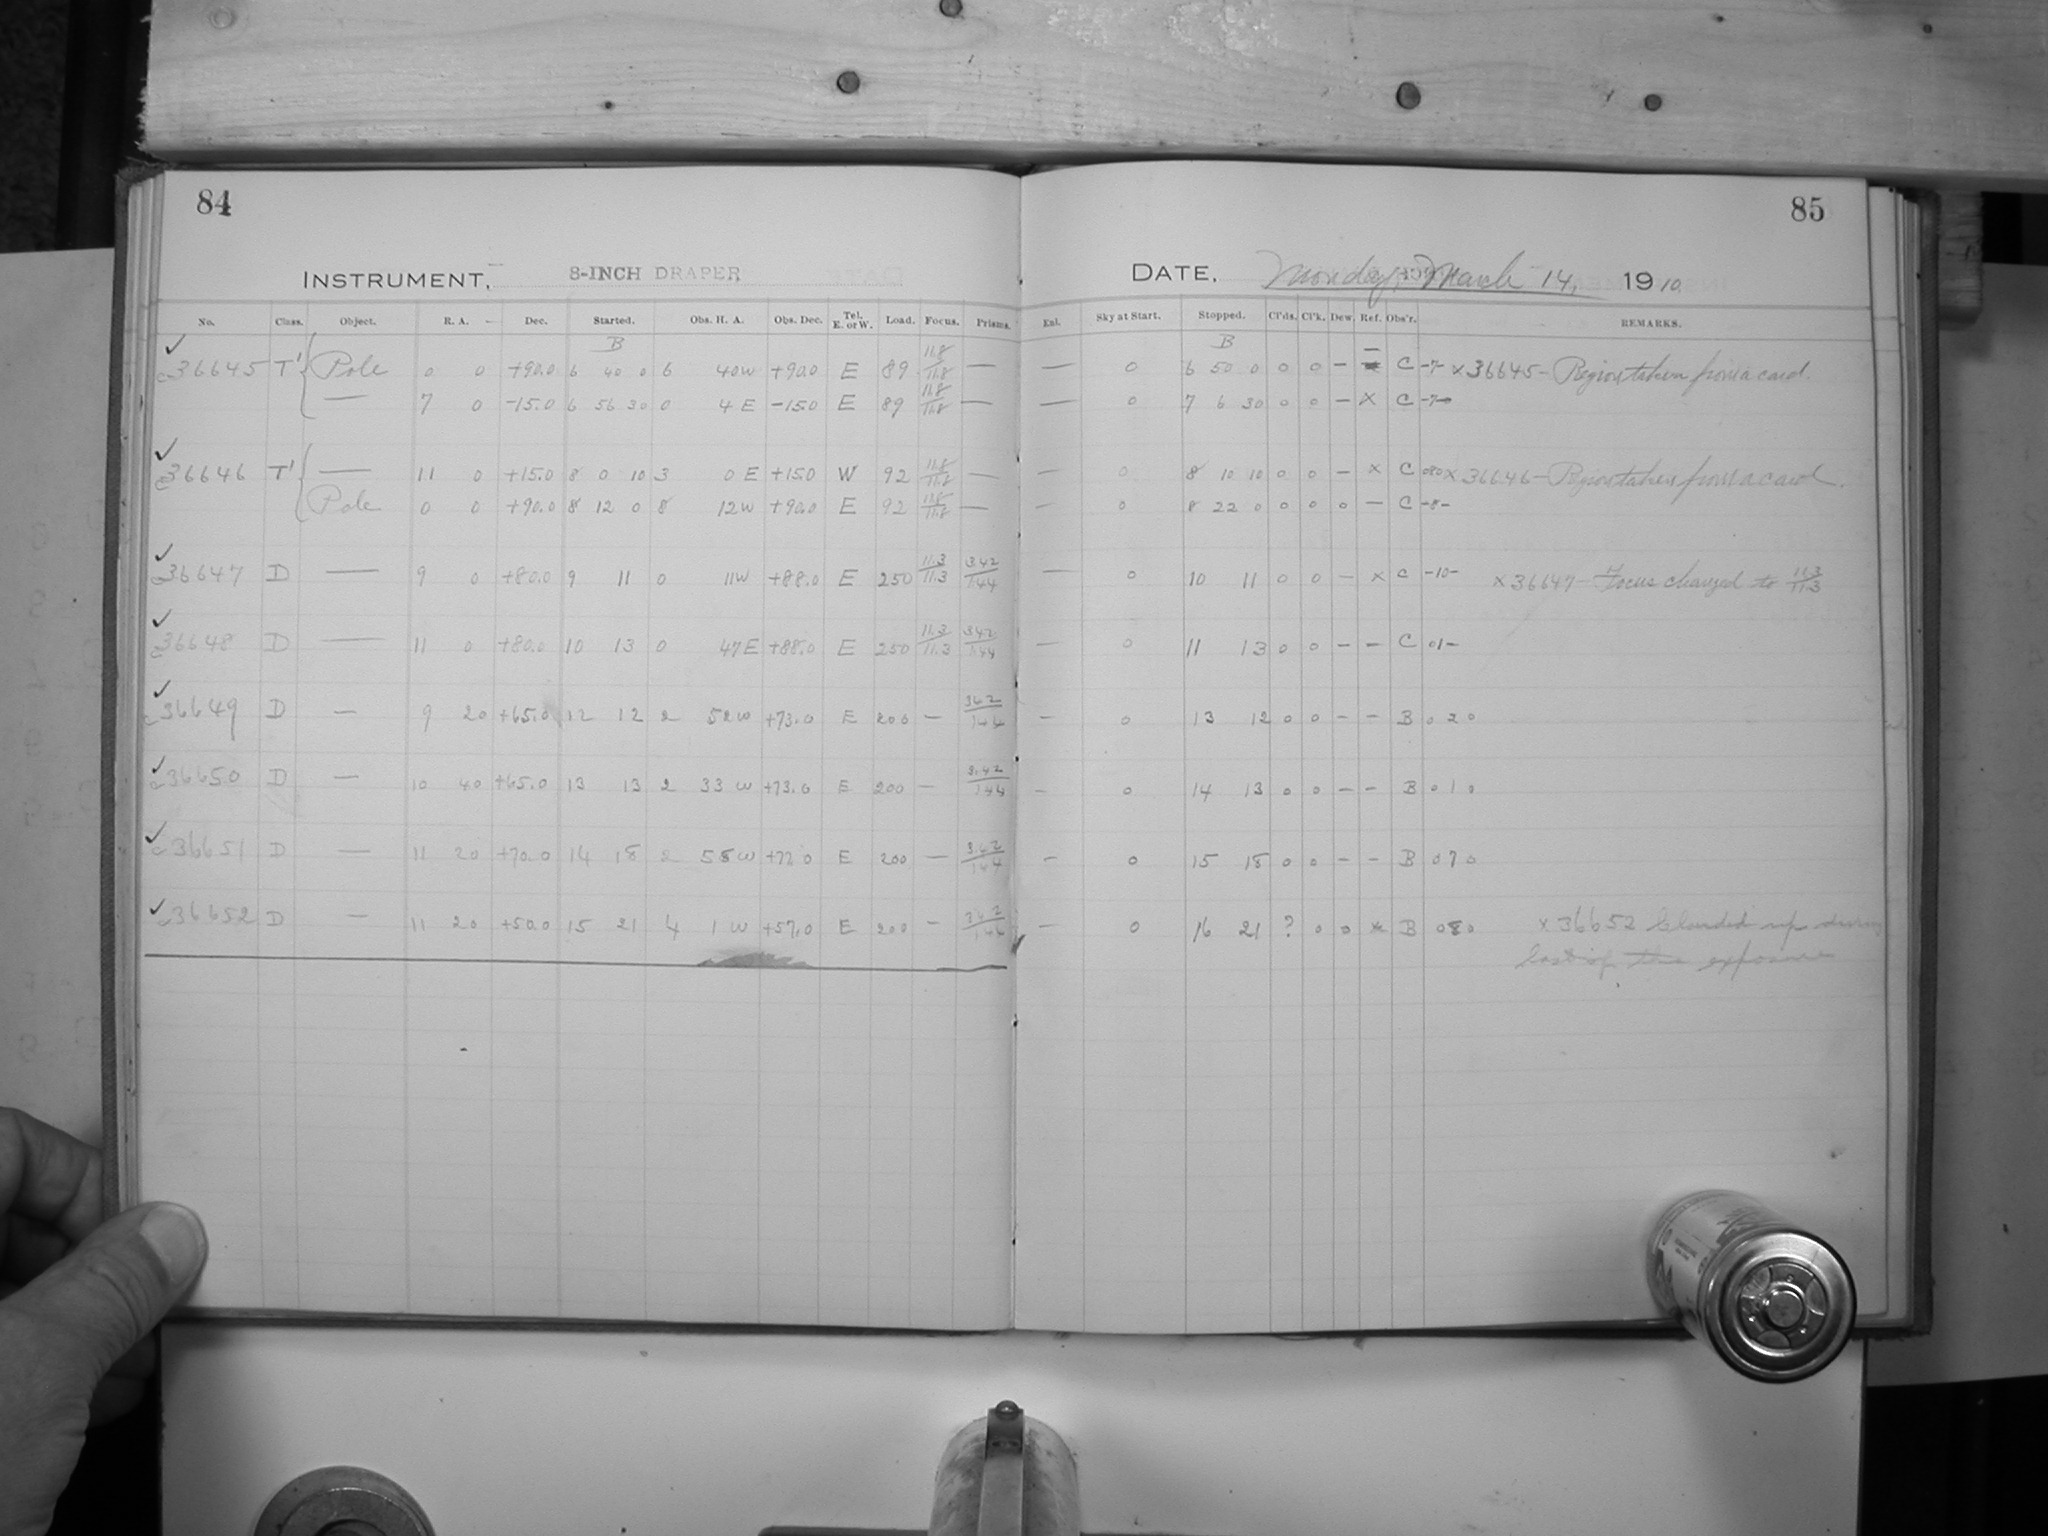 84
INSTRUMENT, 8-INCH DRAPER
No. Class. Object. R. A. Dec. Started. Obs. H. A. Obs. Dec. Tel. E. or W. Load. Focus. Prisms.
B
c36645 T' Pole 0 0 +90.0 6 40 0 6 40W +90.0 E 89 11.8/11.8 —
— 7 0 -15.0 6 56 30 0 4 E -15.0 E 89 11.8/11.8 —
c36646 T' — 11 0 +15.0 8 0 10 3 0 E +15.0 W 92 11.8/11.8 —
Pole 0 0 +90.0 8 12 0 8 12W +90.0 E 92 11.8/11.8 —
c36647 D — 9 0 +80.0 9 11 0 11W +88.0 E 250 11.3/11.3 342/144
c36648 D — 11 0 +80.0 10 13 0 47E +88.0 E 250 11.3/11.3 342/144
c36649 D — 9 20 +65.0 12 12 2 52W +73.0 E 200 — 342/144
c36650 D — 10 40 +65.0 13 13 2 33 W +73.0 E 200 — 342/144
c36651 D — 11 20 +70.0 14 18 2 58 W +77.0 E 200 — 342/144
c36652 D — 11 20 +50.0 15 21 4 1 W +57.0 E 200 — 342/144
85
DATE, Monday, March 14, 1910
Enl. Sky at Start. Stopped. Cl'ds. Cl'k. Dew. Ref. Obs'r. REMARKS.
B
— 0 6 50 0 0 0 – C -7- x36645 – Region taken from a card.
— 0 7 6 30 0 0 – x C -7-
0 8 10 10 0 0 – x C 080 x36646 – Region taken from a card.
— 0 8 22 0 0 0 0 – C -8-
— 0 10 11 0 0 – x C -10- x36647 – Focus changed to 11.3/11.3
— 0 11 13 0 0 – – C 01-
— 0 13 12 0 0 – – B 0 2 0
— 0 14 13 0 0 – – B 0 1 0
— 0 15 18 0 0 – – B 0 7 0
— 0 16 21 ? 0 0 x B 0 8 0 x36652 Clouded up during
last of this exposure